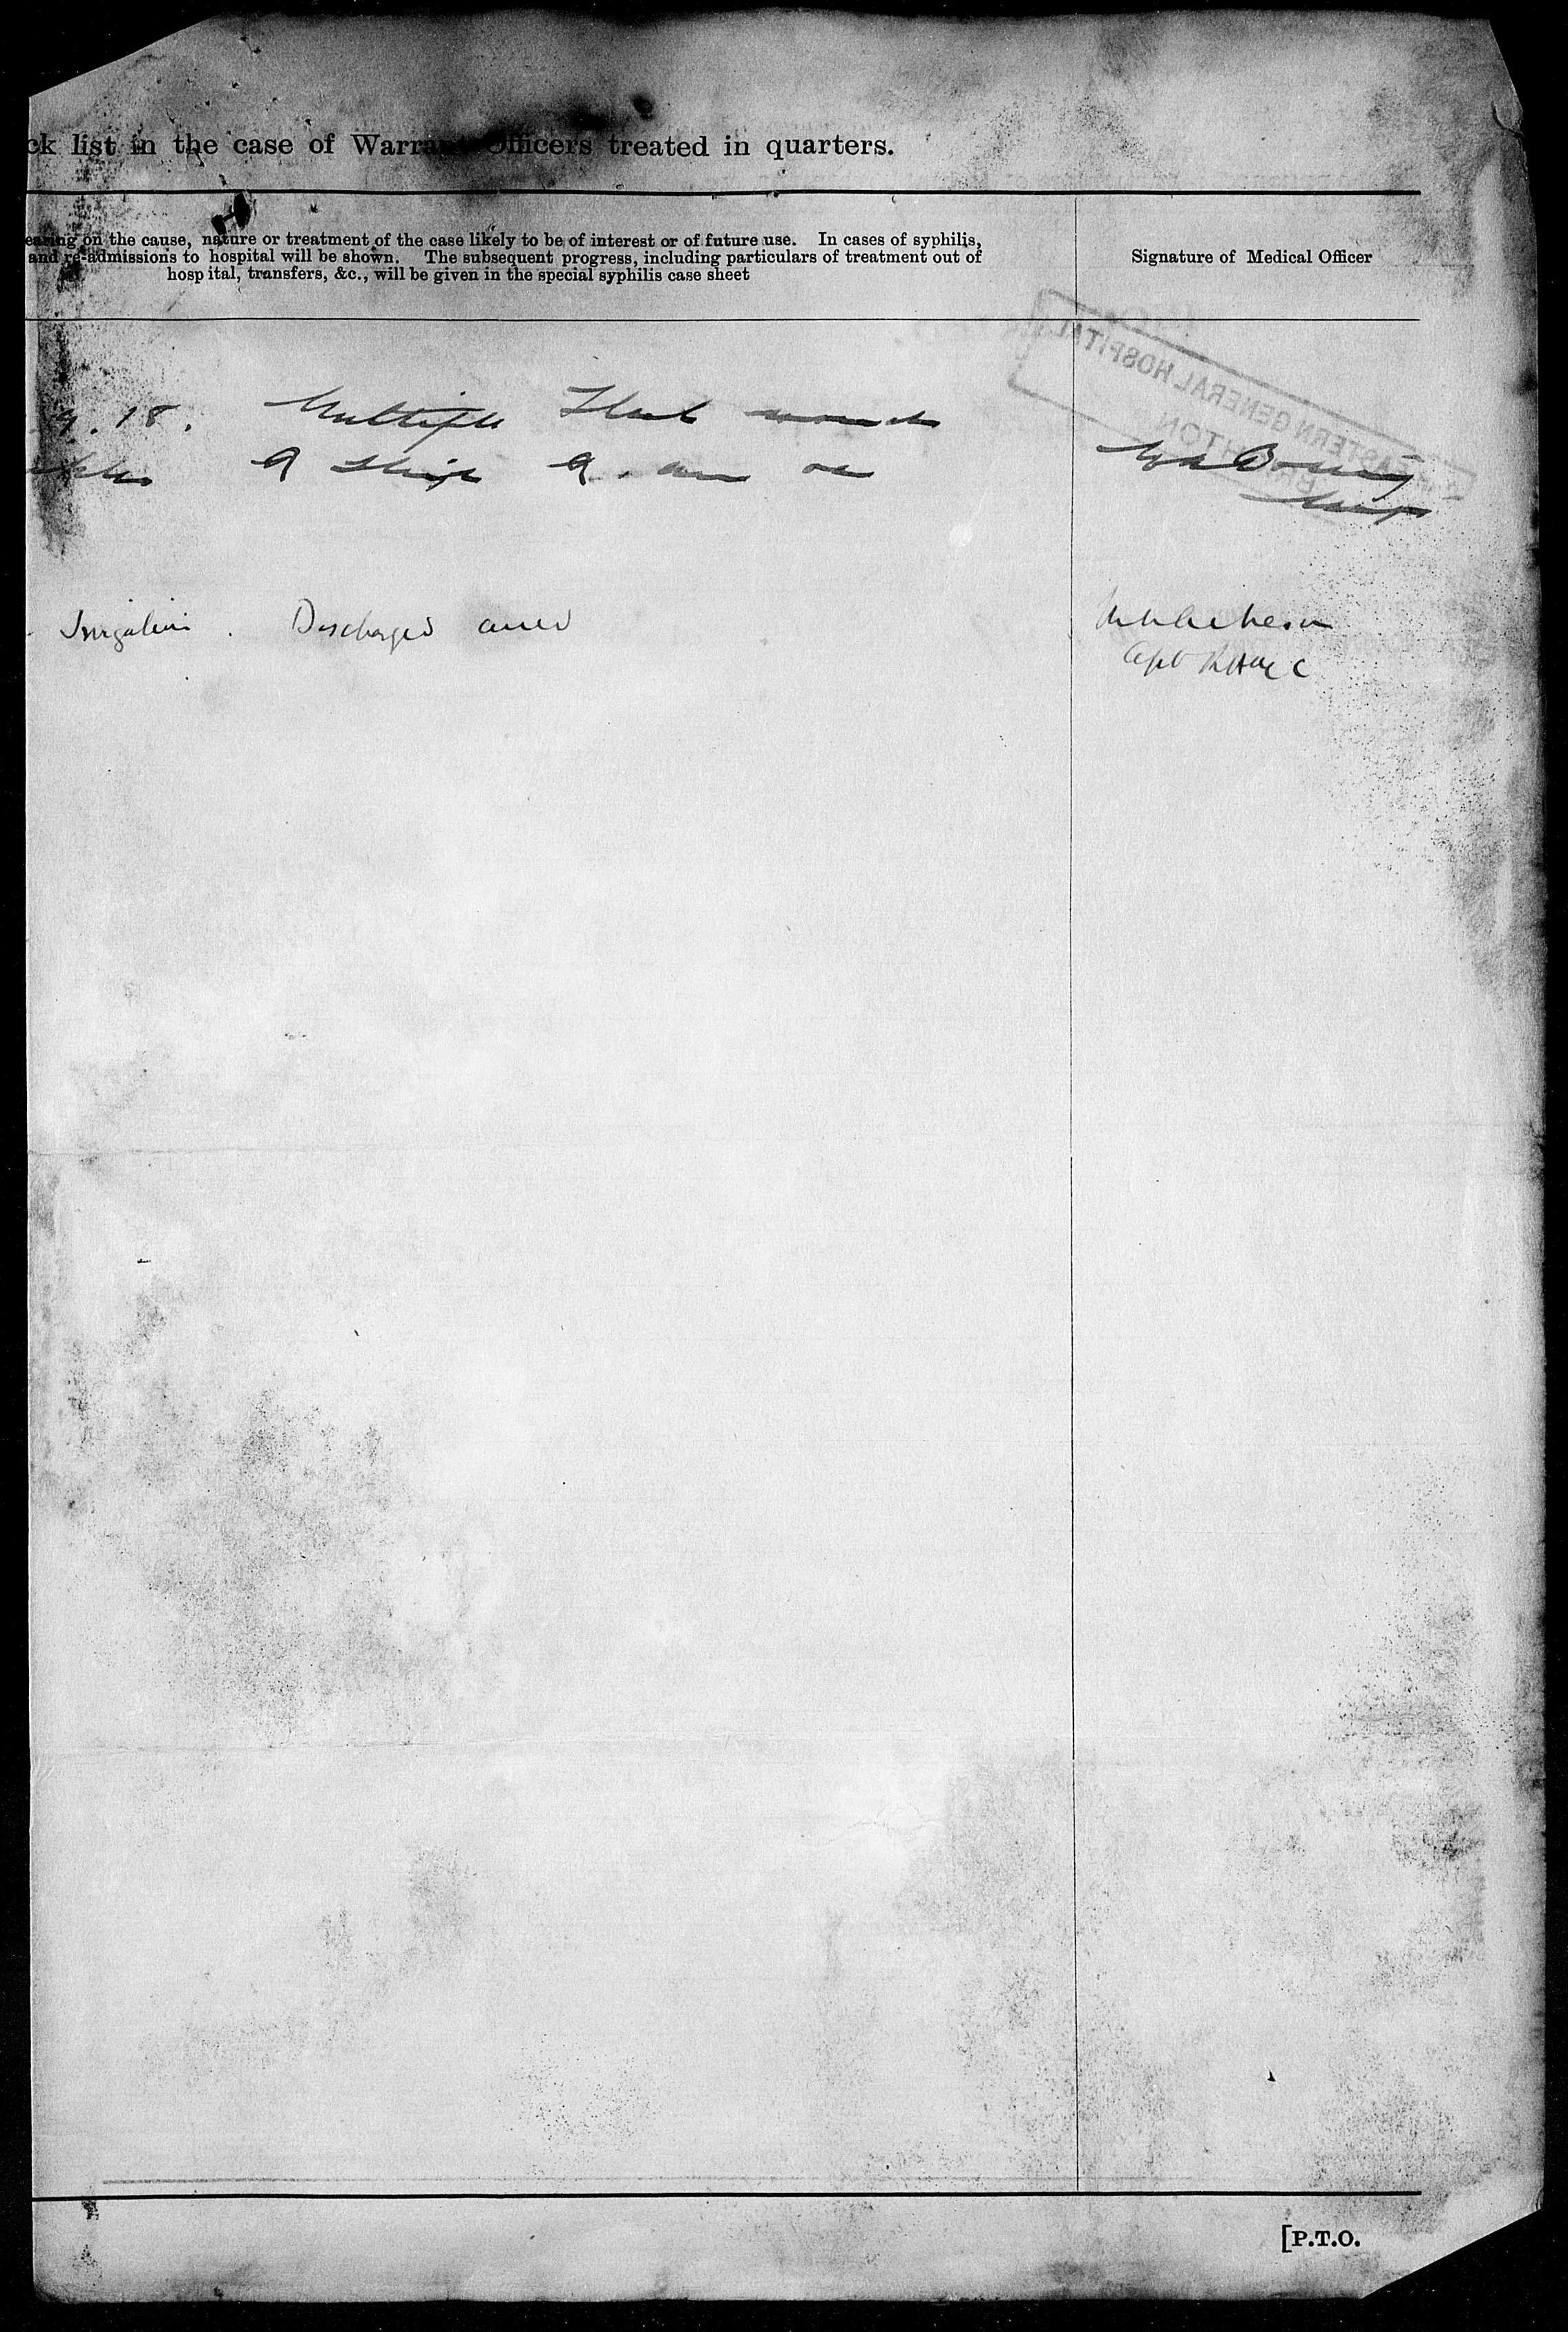 ck list in the case of Warrant Officers treated in quarters.
earing on the cause, nature or treatment of the case likely to be of interest or of future use. In cases of syphilis,
and re-admissions to hospital will be shown. The subsequent progress, including particulars of treatment out of
hospital, transfers, &c., will be given in the special syphilis case sheet
Signature of Medical Officer
EASTERN GENERAL HOSPITAL
BRIGHTON
9. 18. Multiple wounds
Irrigation. Discharged cured
Capt RAMC
[P.T.O.